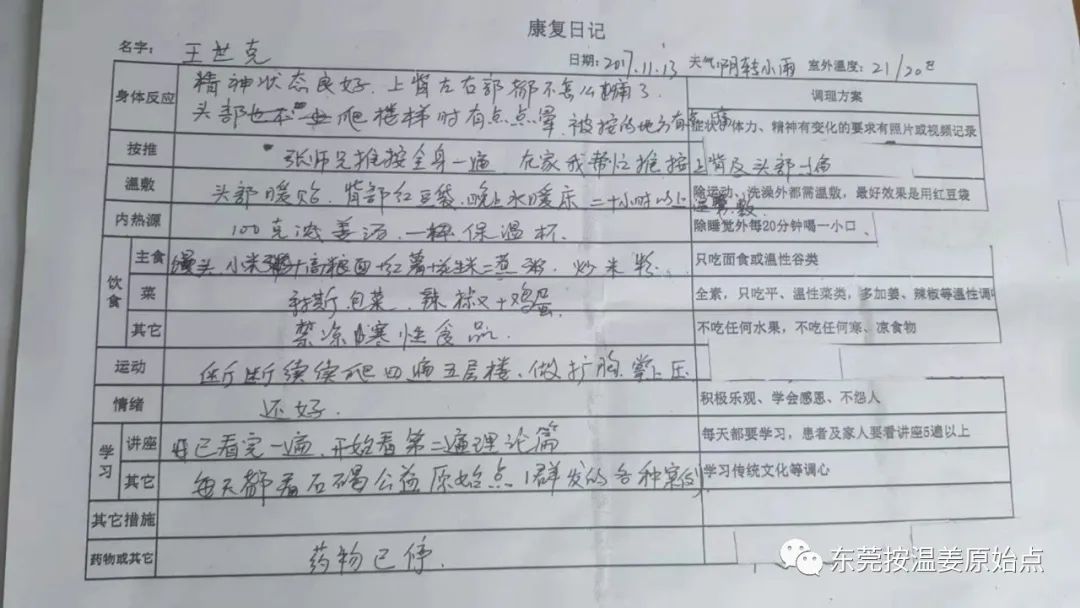 康复日记
名字： 王世克 日期：2017.11.13 天气：阴转小雨 室外温度：21/20℃
身体反应 精神状态良好，上背左右部都不怎么痛了。 调理方案
头部 爬楼梯时有点点晕，被按的地方有点痛 症状、体力、精神有变化的要求有照片或视频记录
按推 张师兄推按全身一遍 在家我帮忙推按上背及头部
温敷 头部暖贴，背部红豆袋，晚上水暖床 二十小时以上温敷 除运动、洗澡外都需温敷，最好效果是用红豆袋
内热源 100克浓姜汤，一杯，保温杯。 除睡觉外每20分钟喝一小口
饮食 主食 馒头，小米 +高粮面+红薯+花生米=煮粥，炒米粉 只吃面食或温性谷类
菜 包菜，辣椒+鸡蛋 全素，只吃平、温性菜类，多加姜、辣椒等温性调
其它 禁凉的寒性食品。 不吃任何水果，不吃任何寒、凉食物
运动 断断续续爬四遍五层楼、做扩胸、掌上压
情绪 还好. 积极乐观、学会感恩、不怨人
学习 讲座 已看完一遍，开始看第二遍理论篇 每天都要学习，患者及家人要看讲座5遍以上
其它 每天都看石碣公益原始点1群发的各种案例 学习传统文化等调心
其它措施
药物或其它 药物已停.
东莞按温姜原始点